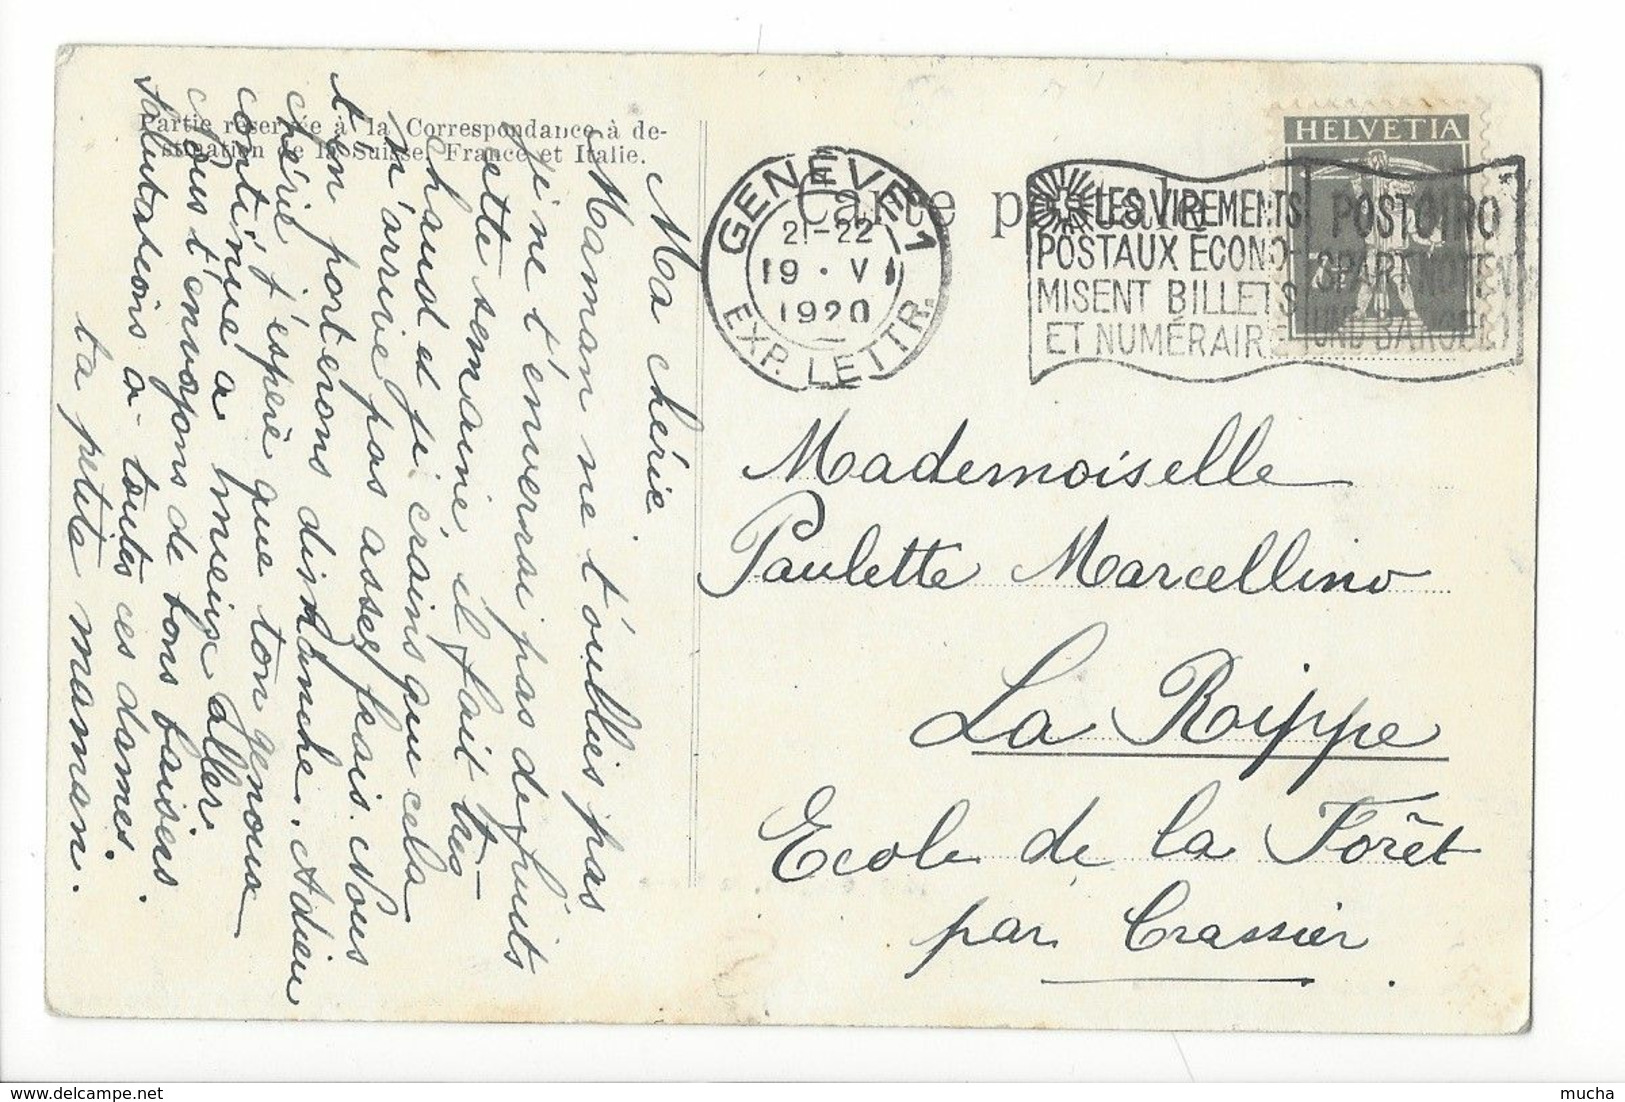 Partie réservée à la Correspondance à de-
stination de la Suisse, France et Italie.
Carte postale
HELVETIA
GENÈVE 1
21-22
19 · VI
1920
EXP. LETTR.
LES VIREMENTS
POSTAUX ÉCONO-
MISENT BILLETS
ET NUMÉRAIRE
POSTGIRO
SPART NOTEN
UND BARGELD
Ma chérie
Maman ne t'oublies pas
je ne t'enverrai pas de fruits
cette semaine, il fait très-
chaud et je crains que cela
n'arrive pas assez frais. Nous
t'en porterons dimanche. Adieu
chérie j'espère que ton genoux
continue a mieux aller
nous t'envoyons de bons baisers.
Salutations à toutes ces dames.
ta petite maman.
Mademoiselle
Paulette Marcellino
La Rippe
Ecole de la Forêt
par Crassier
mucha